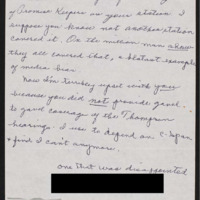 of Promise Keepers on your station. I
suppose you know not another station
covered it. On the million man show
they all covered that, a blatant example
of media bias.
Now I'm terribly upset with you
because you did not provide gavel
to gavel coverage of the Thompson
hearings. I use to depend on C-Span
& find I can't anymore.
one that was disappointed